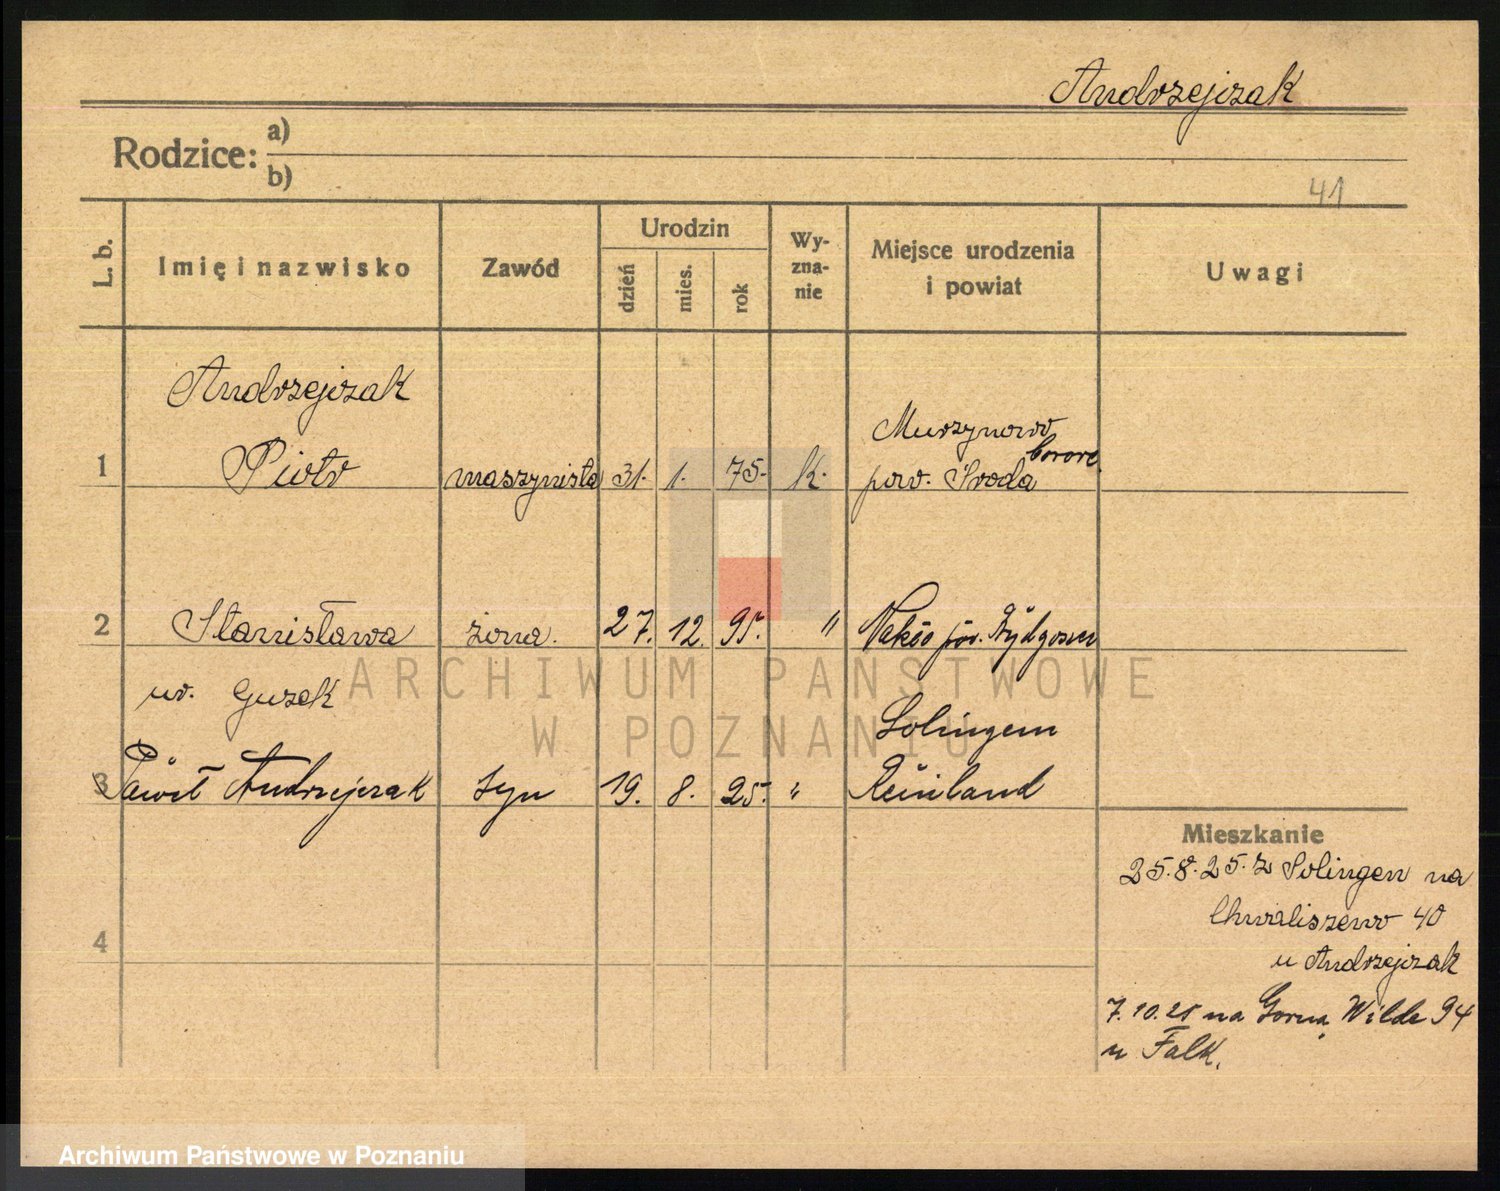 Andrzejczak
Rodzice: a)
b)
41
L. b.
Imię i nazwisko
Zawód
Urodzin
dzień
mies.
rok
Wy-
zna-
nie
Miejsce urodzenia
i powiat
Uwagi
Andrzejczak
Murzynowo
1 Piotr maszynista 31. 1. 75. k. pow. Środa
2 Stanisława żona. 27. 12. 95. " Nakło pow. Bydgoszcz
ur. Guzek
Solingem
3 Paweł Andrzejczak syn 19. 8. 25. " Reinland
Mieszkanie
25.8.25. z Solingen na
Chwaliszewo 40
u Andrzejczak
4
7.10.25 na Górną Wilde 94
u Falk.
ARCHIWUM PAŃSTWOWE
W POZNANIU
Archiwum Państwowe w Poznaniu